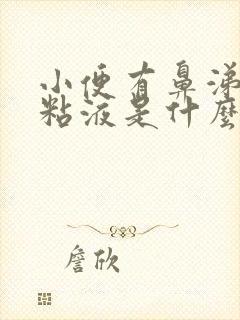 小便有鼻涕
粘液是什麼
詹欣